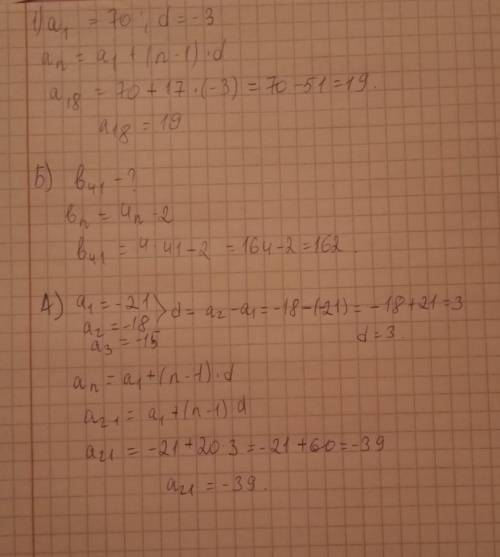 1) a₁ = 70 ; d = -3
aₙ = a₁ + (n-1)·d
a₁₈ = 70 + 17·(-3) = 70-51 = 19.
a₁₈ = 19
5) b₄₁ - ?
bₙ = 4n - 2
b₄₁ = 4·41-2 = 164-2 = 162.
4) a₁ = -21 > d = a₂ - a₁ = -18-(-21) = -18+21 = 3
a₂ = -18
a₃ = -15 d = 3.
aₙ = a₁ + (n-1)·d
a₂₁ = a₁ + (n-1)·d
a₂₁ = -21+20·3 = -21+60 = -39
a₂₁ = -39.